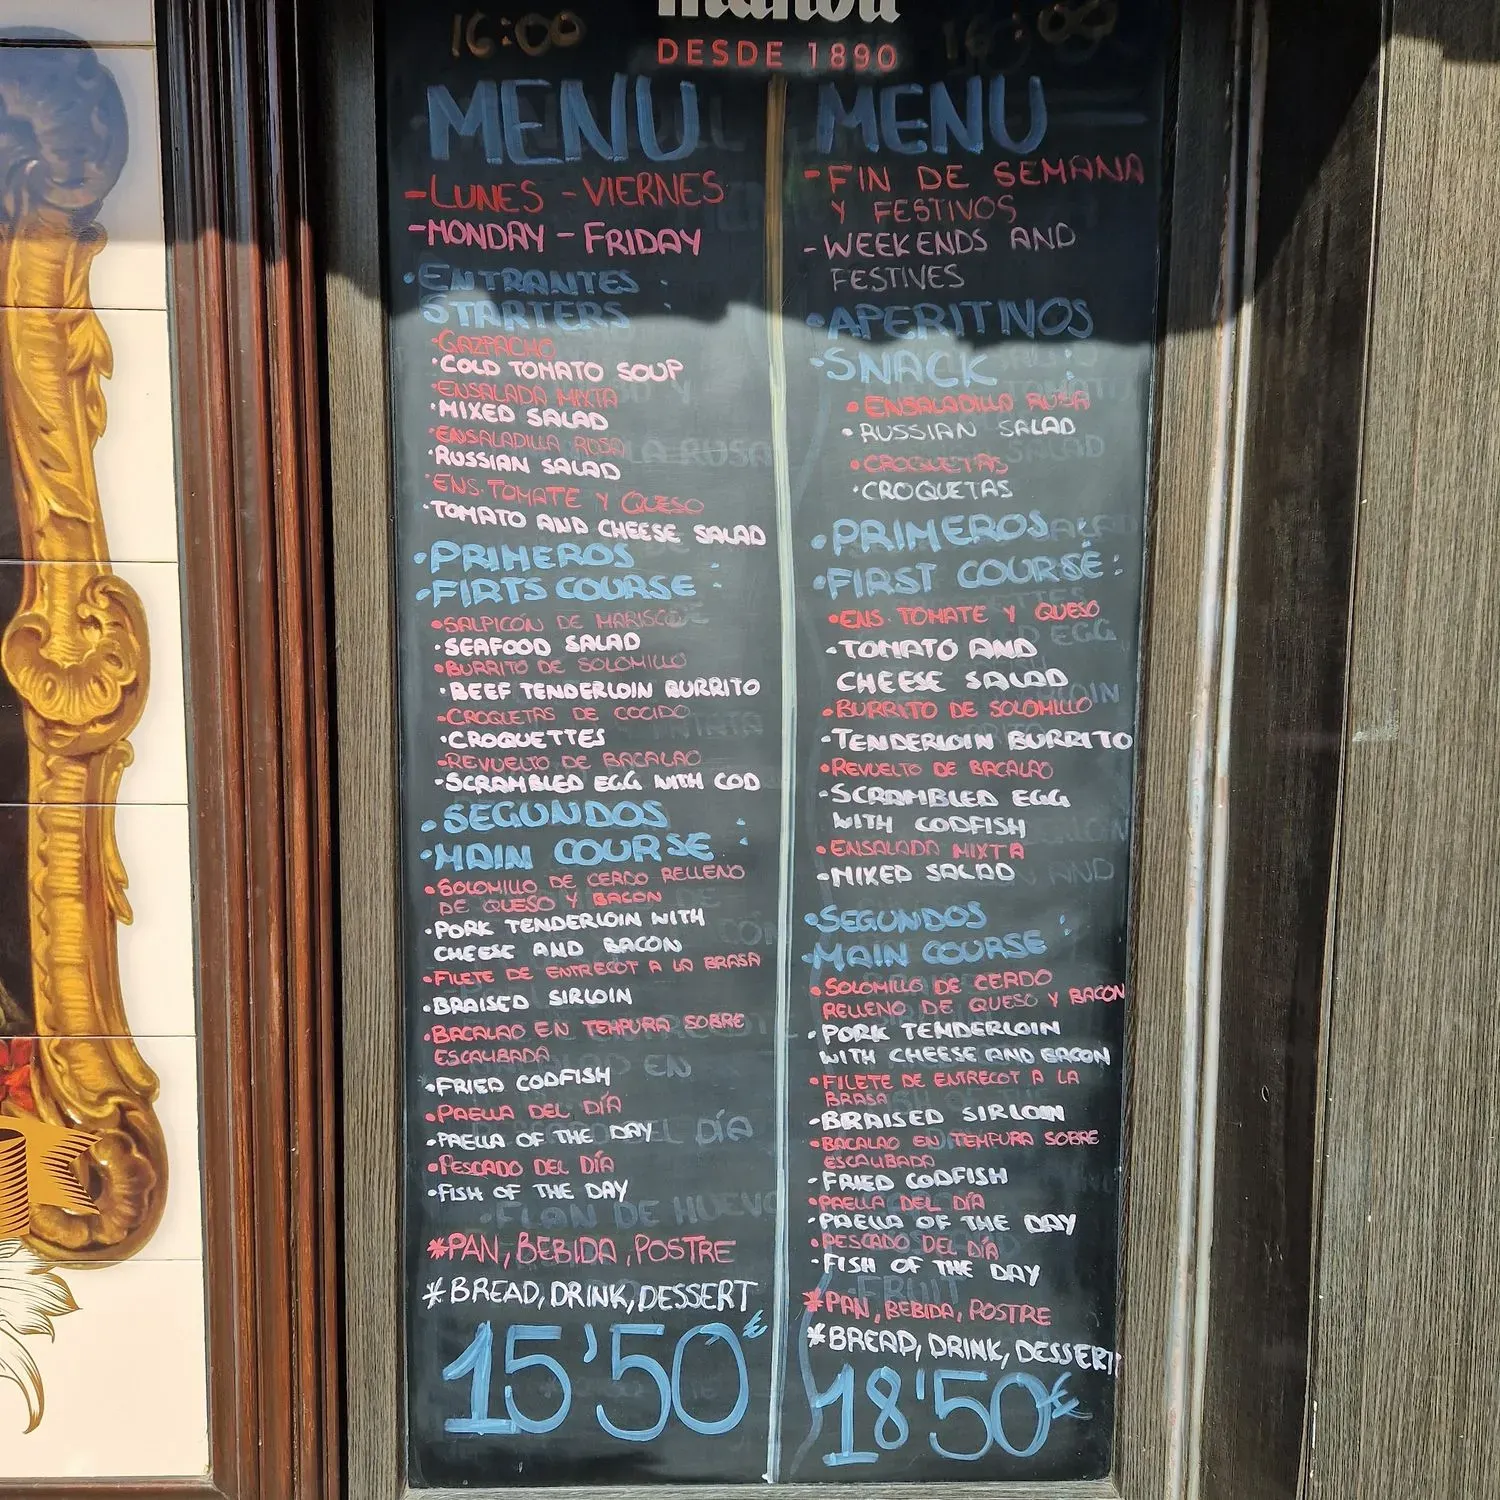 16:00
16:00
mahou
DESDE 1890
MENU
-LUNES - VIERNES
-MONDAY - FRIDAY
·ENTRANTES :
STARTERS
·GAZPACHO
·COLD TOMATO SOUP
·ENSALADA MIXTA
·MIXED SALAD
·ENSALADILLA ROSA
·RUSSIAN SALAD
·ENS.TOMATE Y QUESO
·TOMATO AND CHEESE SALAD
·PRIMEROS
·FIRTS COURSE :
·SALPICÓN DE MARISCO
·SEAFOOD SALAD
·BURRITO DE SOLOMILLO
·BEEF TENDERLOIN BURRITO
·CROQUETAS DE COCIDO
·CROQUETTES
·REVUELTO DE BACALAO
·SCRAMBLED EGG WITH COD
·SEGUNDOS
·MAIN COURSE :
·SOLOMILLO DE CERDO RELLENO
DE QUESO Y BACON
·PORK TENDERLOIN WITH
CHEESE AND BACON
·FILETE DE ENTRECOT A LA BRASA
·BRAISED SIRLOIN
·BACALAO EN TEMPURA SOBRE
ESCALIBADA
·FRIED CODFISH
·PAELLA DEL DÍA
·PAELLA OF THE DAY
·PESCADO DEL DÍA
·FISH OF THE DAY
*PAN, BEBIDA, POSTRE
*BREAD, DRINK, DESSERT
15'50€
MENU
-FIN DE SEMANA
Y FESTIVOS
-WEEKENDS AND
FESTIVES
·APERITIVOS
·SNACK :
·ENSALADILLA RUSA
·RUSSIAN SALAD
·CROQUETAS
·CROQUETAS
·PRIMEROS :
·FIRST COURSE :
·ENS. TOMATE Y QUESO
·TOMATO AND
CHEESE SALAD
·BURRITO DE SOLOMILLO
·TENDERLOIN BURRITO
·REVUELTO DE BACALAO
·SCRAMBLED EGG
WITH CODFISH
·ENSALADA MIXTA
·MIXED SALAD
·SEGUNDOS :
·MAIN COURSE
·SOLOMILLO DE CERDO
RELLENO DE QUESO Y BACON
·PORK TENDERLOIN
WITH CHEESE AND BACON
·FILETE DE ENTRECOT A LA
BRASA
·BRAISED SIRLOIN
·BACALAO EN TEMPURA SOBRE
ESCALIBADA
·FRIED CODFISH
·PAELLA DEL DÍA
·PAELLA OF THE DAY
·PESCADO DEL DÍA
·FISH OF THE DAY
*PAN, BEBIDA, POSTRE
*BREAD, DRINK, DESSERT
18'50€